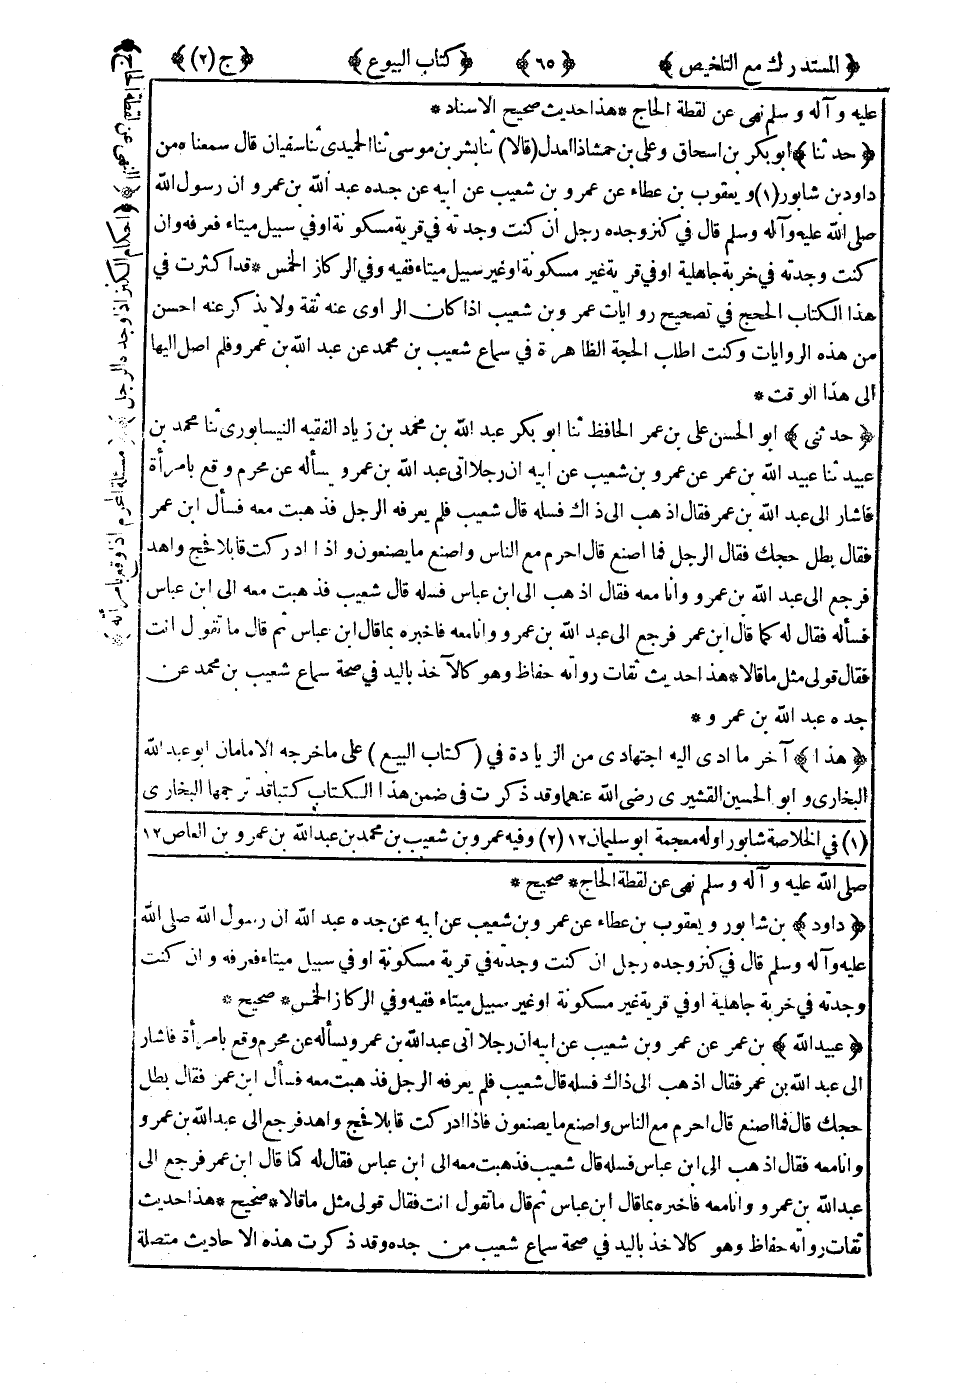 ﴿ المستدرك مع التلخيص ﴾ ﴿ ٦٥ ﴾ ﴿ كتاب البيوع ﴾ ﴿ ج (٢) ﴾
عليه وآله وسلم نهى عن لقطة الحاج * هذا حديث صحيح الاسناد *
﴿ حدثنا ﴾ ابو بكر بن اسحاق وعلى بن حمشاذ العدل (قالا) ثنا بشر بن موسى ثنا الحميدى ثنا سفيان قال سمعناه من
داود بن شابور (١) ويعقوب بن عطاء عن عمرو بن شعيب عن ابيه عن جده عبد الله بن عمرو ان رسول الله
صلى الله عليه وآله وسلم قال في كنز وجده رجل ان كنت وجدته في قرية مسكونة او في سبيل ميتاء فعرفه وان
كنت وجدته في خربة جاهلية او في قرية غير مسكونة او غير سبيل ميتاء ففيه وفي الركاز الخمس * قد اكثرت في
هذا الكتاب الحجج في تصحيح روايات عمرو بن شعيب اذا كان الراوى عنه ثقة ولا يذكر عنه احسن
من هذه الروايات وكنت اطلب الحجة الظاهرة في سماع شعيب بن محمد عن عبد الله بن عمرو فلم اصل اليها
الى هذا الوقت *
﴿ حدثنى ﴾ ابو الحسن على بن عمر الحافظ ثنا ابو بكر عبد الله بن محمد بن زياد الفقيه النيسابورى ثنا محمد بن
عبيد ثنا عبيد الله بن عمر عن عمرو بن شعيب عن ابيه ان رجلا اتى عبد الله بن عمرو يسأله عن محرم وقع بامرأة
فاشار الى عبد الله بن عمر فقال اذهب الى ذاك فسله قال شعيب فلم يعرفه الرجل فذهبت معه فسأل ابن عمر
فقال بطل حجك فقال الرجل فما اصنع قال احرم مع الناس واصنع ما يصنعون واذا ادركت قابلا فحج واهد
فرجع الى عبد الله بن عمرو وانا معه فقال اذهب الى ابن عباس فسله قال شعيب فذهبت معه الى ابن عباس
فسأله فقال له كما قال ابن عمر فرجع الى عبد الله بن عمرو وانا معه فاخبره بما قال ابن عباس ثم قال ما تقول انت
فقال قولى مثل ما قالا * هذا حديث ثقات رواته حفاظ وهو كالآخذ باليد في صحة سماع شعيب بن محمد عن
جده عبد الله بن عمرو *
﴿ هذا ﴾ آخر ما ادى اليه اجتهادى من الزيادة في (كتاب البيع) على ما خرجه الامامان ابو عبد الله
البخارى وابو الحسين القشيرى رضى الله عنهما وقد ذكرت فى ضمن هذا الكتاب كتبا قد ترجمها البخارى
(١) في الخلاصة شابور اوله معجمة ابو سليمان ١٢ (٢) وفيه عمرو بن شعيب بن محمد بن عبد الله بن عمرو بن العاص ١٢
صلى الله عليه وآله وسلم نهى عن لقطة الحاج * صحيح *
﴿ داود ﴾ بن شابور ويعقوب بن عطاء عن عمرو بن شعيب عن ابيه عن جده عبد الله ان رسول الله صلى الله
عليه وآله وسلم قال في كنز وجده رجل ان كنت وجدته في قرية مسكونة او في سبيل ميتاء فعرفه وان كنت
وجدته في خربة جاهلية او في قرية غير مسكونة او غير سبيل ميتاء ففيه وفي الركاز الخمس * صحيح *
﴿ عبيد الله ﴾ بن عمر عن عمرو بن شعيب عن ابيه ان رجلا اتى عبد الله بن عمرو يسأله عن محرم وقع بامرأة فاشار
الى عبد الله بن عمر فقال اذهب الى ذاك فسله قال شعيب فلم يعرفه الرجل فذهبت معه فسأل ابن عمر فقال بطل
حجك قال فما اصنع قال احرم مع الناس واصنع ما يصنعون فاذا ادركت قابلا فحج واهد فرجع الى عبد الله بن عمرو
وانا معه فقال اذهب الى ابن عباس فسله قال شعيب فذهبت معه الى ابن عباس فقال له كما قال ابن عمر فرجع الى
عبد الله بن عمرو وانا معه فاخبره بما قال ابن عباس ثم قال ما تقول انت فقال قولى مثل ما قالا * صحيح * هذا حديث
ثقات رواته حفاظ وهو كالاخذ باليد في صحة سماع شعيب من جده وقد ذكرت هذه الاحاديث متصلة
النهى عن لقطة الحاج
احكام الكنز اذا وجده الرجل
مسئلة المحرم اذا وقع بامرأته *